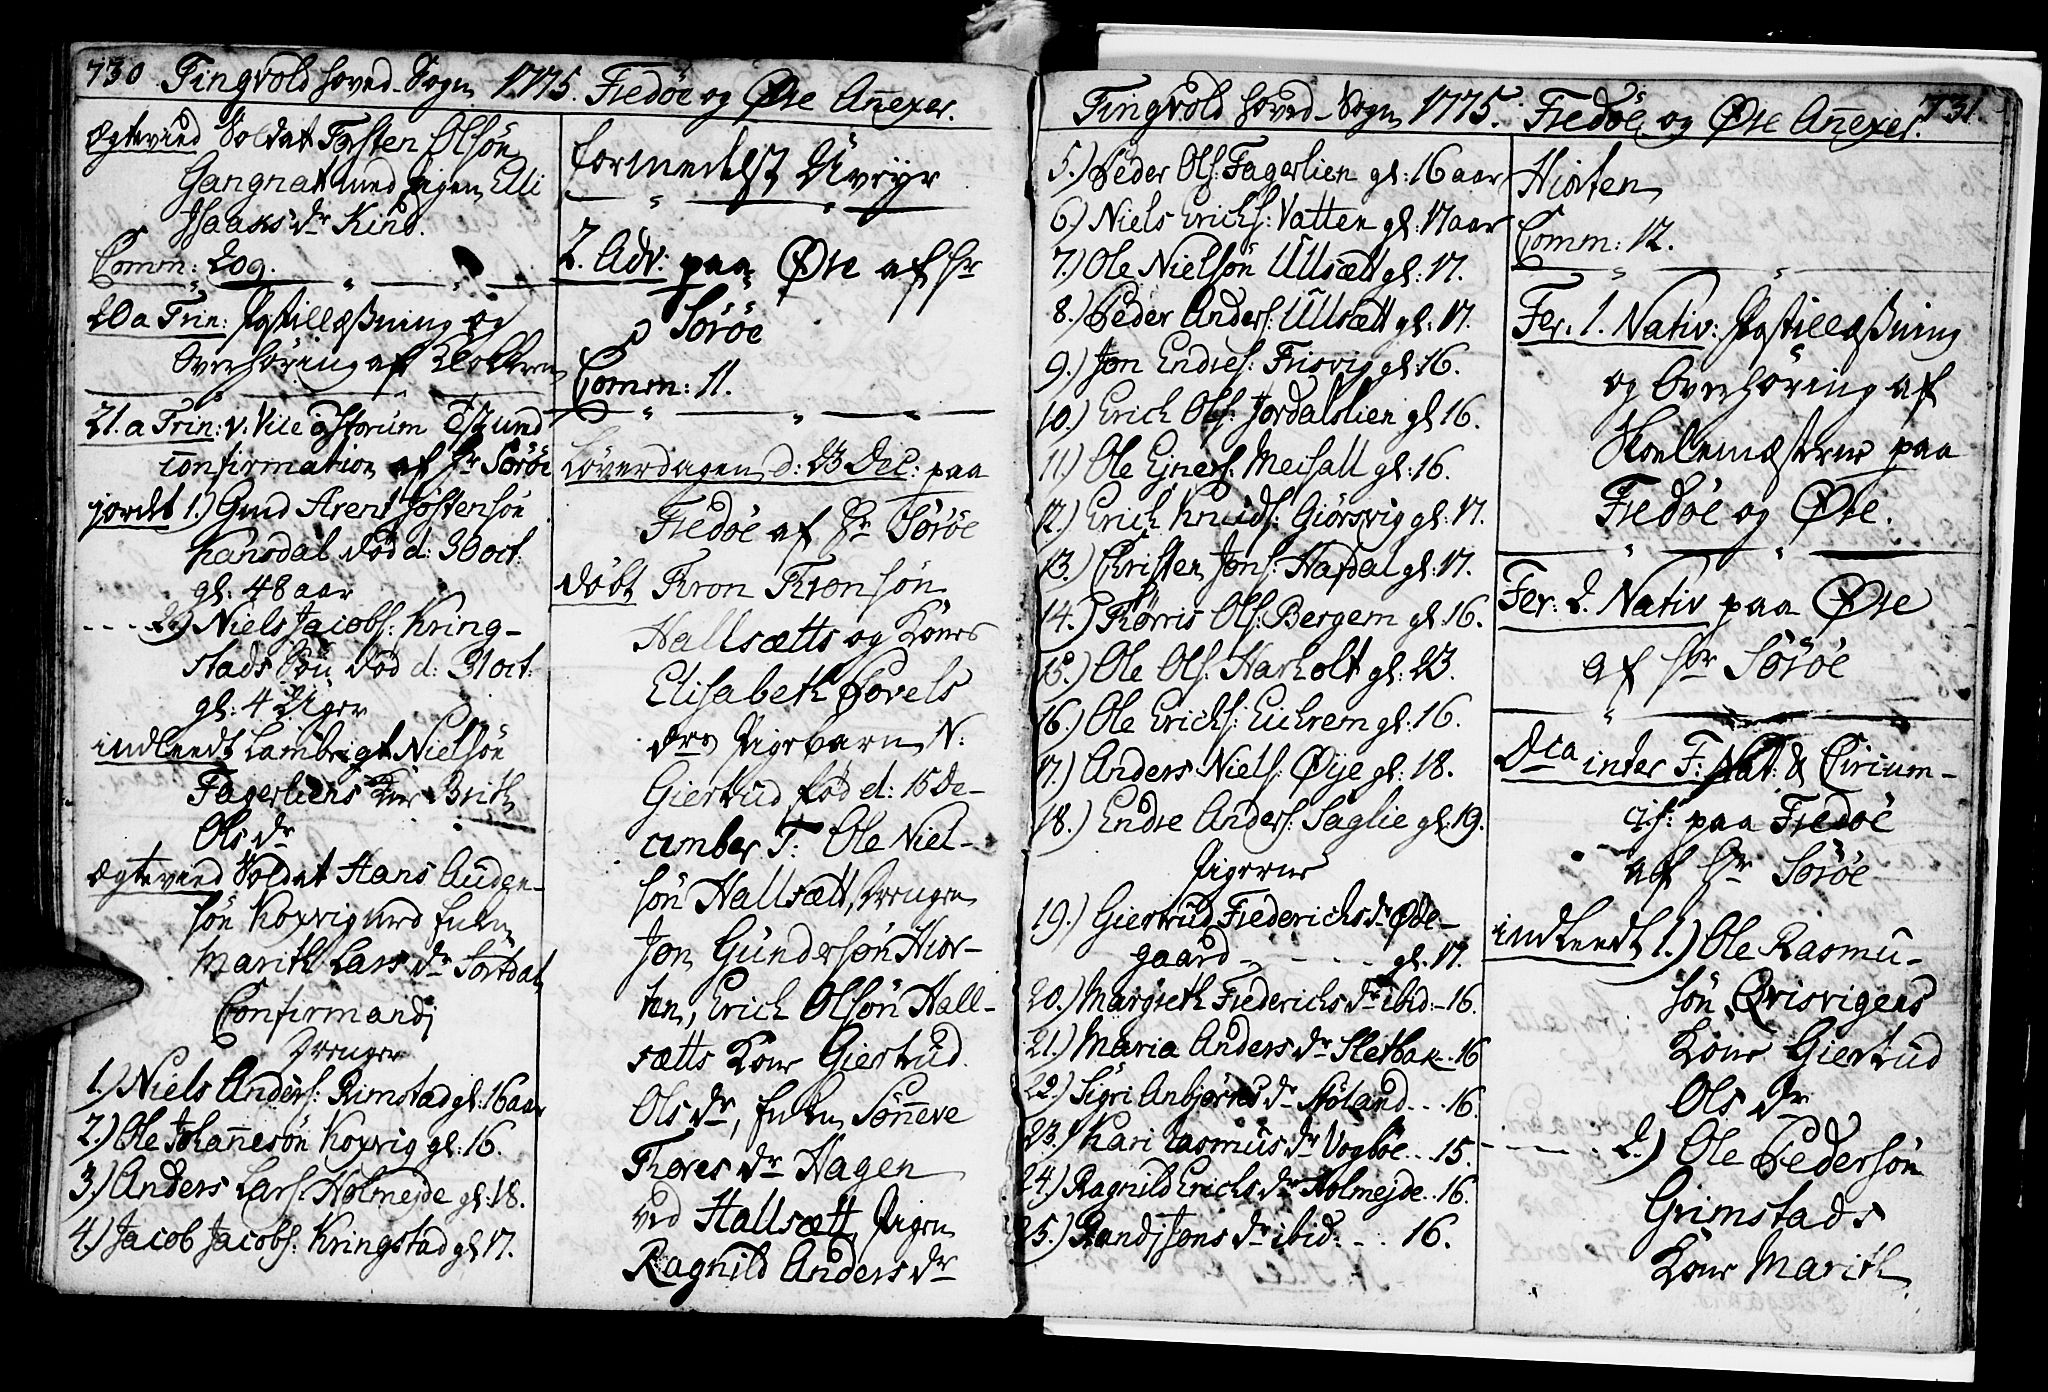 730 Tingvold hoved-Sogn 1775. Fredøe og Øre Añexer.
Ægteviid Soldat Tosten Olsøn
Gangnat med pigen Elli
Isaaks dr Kind.
Comm: 20g.
20 a Trin: Postillæßning og
Overhøring af Klokkeren
21. a Trin: v. Vice pastorum Øslund
confirmation af Hr Sørøe
jordet 1.) Gmd Arent Jostensøn
Hansdal død d: 30 oct:
gl: 48 aar
2.) Niels Jacobs: Kring-
stads Søn død d: 31 oct:
gl: 4 Uger
indleedt Lambrigt Nielsøn
Fagerliens Kone Brith
Ols dr
Ægteviid Soldat Hans Auden-
søn Koxvig med Enken
Marith Lars dr Tortdal
Confirmandi
Drenger
1.) Niels Anders: Rimstad gl: 16 aar
2.) Ole Johañesøn Koxvig gl: 16.
3.) Anders Lars: Holmejde gl: 18.
4.) Jacob Jacobs: Kringstad gl: 17.
formedelst Uveyr
2. Adv: paa Øre af Hr
Sørøe
Comm: 11.
Løverdagen d: 23 Dec: paa
Fredøe af Hr Sørøe
Døbt Tron Tronsøn
Hallsætts og Kones
Elisabeth Povels
drs Pigebarn N:
Giertrud fød d: 15 De-
cember T: Ole Niel-
søn Hallsætt, Drengen
Jon Gundersøn Hior-
ten, Erich Olsøn Hall-
sætts Kone Giertrud
Ols dr, Enken Søñeve
Thores dr Hagen
ved Hallsætt, Pigen
Ragnild Anders dr
Tingvold hoved-Sogn 1775. Fredøe og Øre Añexer. 731.
5.) Peder Ols: Fagerlien gl: 16 aar
6.) Niels Erichs: Vatten gl: 17 aar
7.) Ole Nielsøn Ullsætt gl: 17.
8.) Peder Anders: Ullsætt gl: 17.
9.) Jon Endres: Frisvig gl: 16.
10.) Erich Ols: Jordalslien gl: 16.
11.) Ole Ejners: Meisalt gl: 16.
12.) Erich Knuds: Giørsvig gl: 17.
13.) Christen Jons: Hafdal gl: 17.
14.) Thørris Ols: Bergem gl: 16.
15.) Ole Ols: Harholt gl: 23.
16.) Ole Erichs: Eichrem gl: 16.
17.) Anders Niels: Øije gl: 18.
18.) Endre Anders: Saglie gl: 19.
Pigerne
19.) Giertrud Frederichs dr Øde-
gaard - - - gl: 17.
20.) Margreth Frederichs dr ibid: - 16.
21.) Maria Anders dr Sletbak - 16
22.) Sigri Anbjørns dr Høland - - 16.
23.) Kari Rasmus dr Vogbøe - - 15.
24.) Ragnild Erichs dr Holmejde - - 16.
25.) Randj Jons dr ibid: - - 16.
Hiorten
Comm: 12.
Fer. 1. Nativ: Postillæßning
og Overhøring af
Skolemæsterne paa
Fredøe og Øre.
Fer: 2. Nativ paa Øre
af Hr Sørøe
Dca inter F: Nat: & Circum-
cis: paa Fredøe
af Hr Sørøe
indleedt 1.) Ole Rasmu-
søn Qvisvigens
Kone Giertrud
Ols dr
2.) Ole Pedersøn
Grimstads
Kone Marith